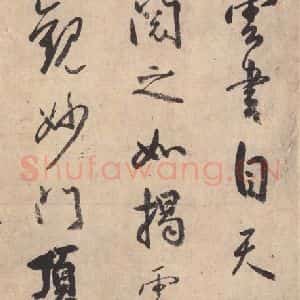 雲書自天
閱之如揭
觀妙门頂
Shufawang.CN